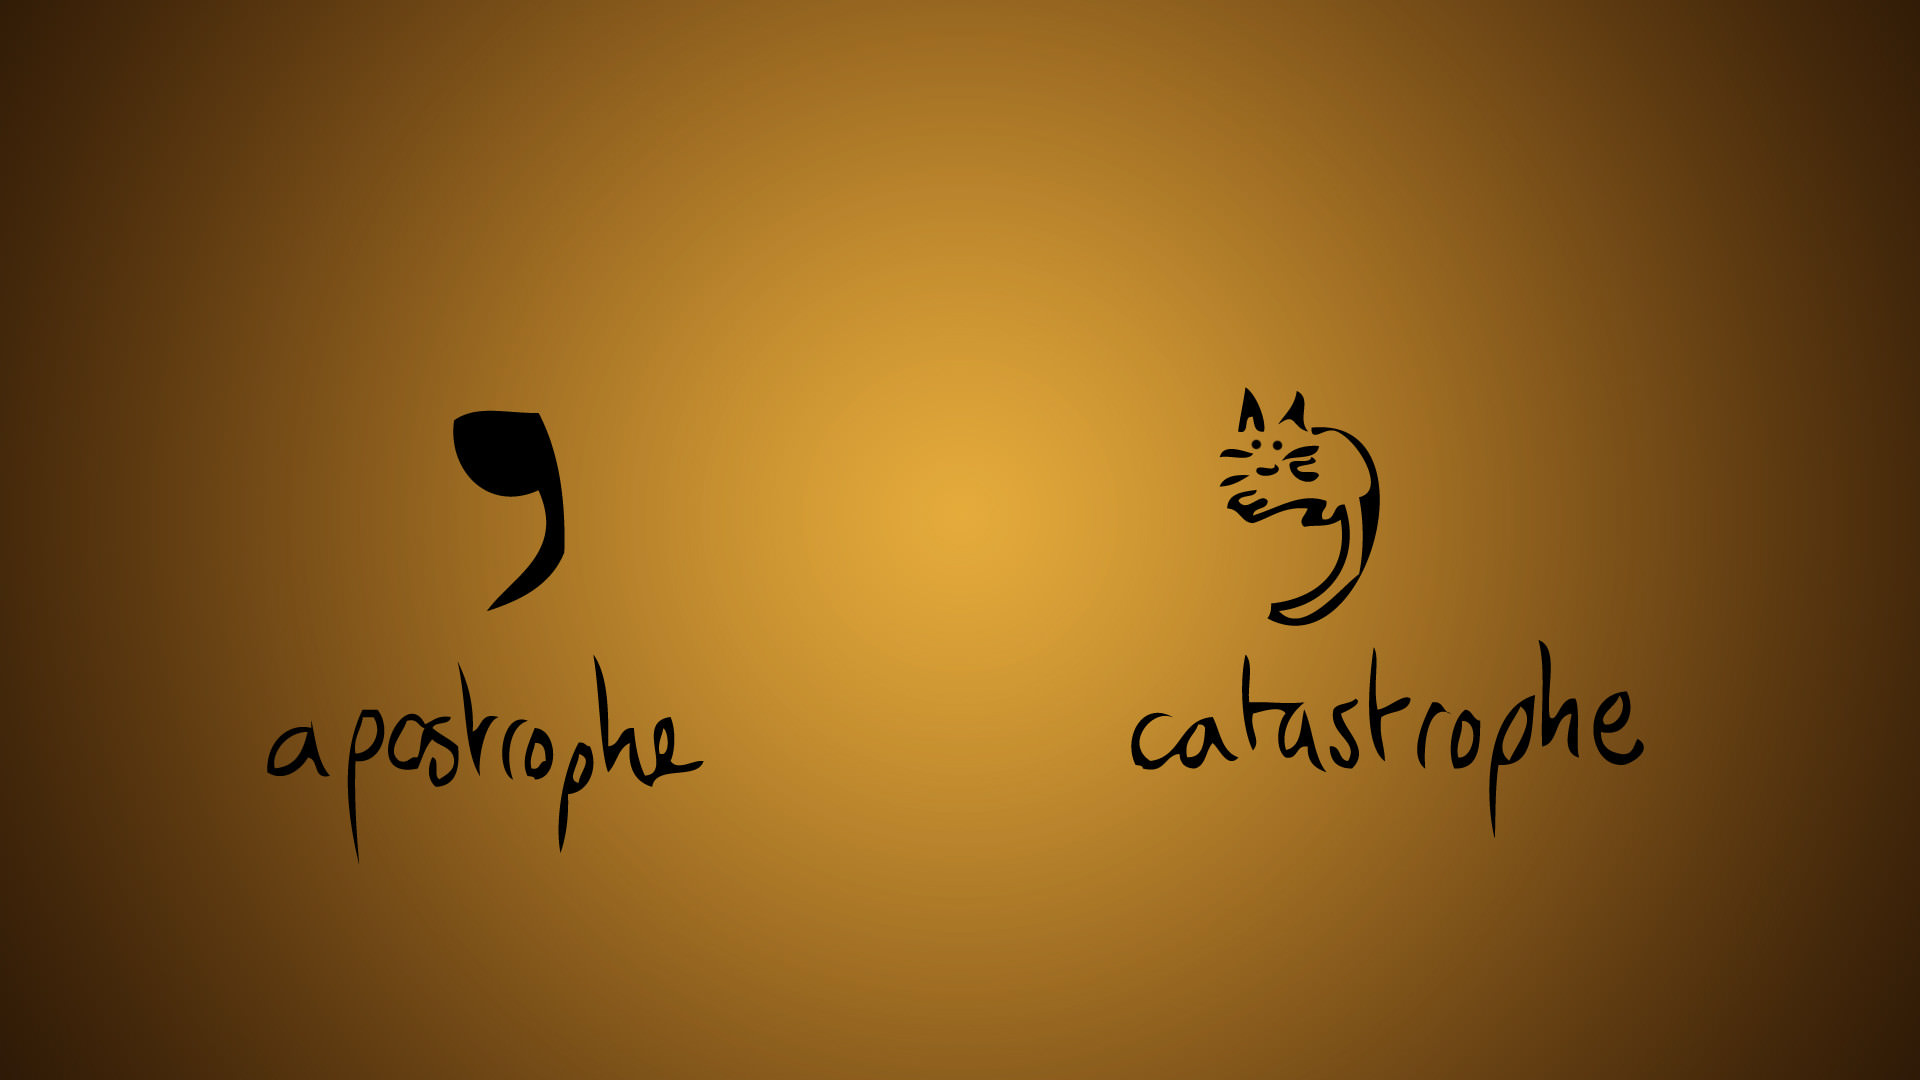 ,
apostrophe
catastrophe